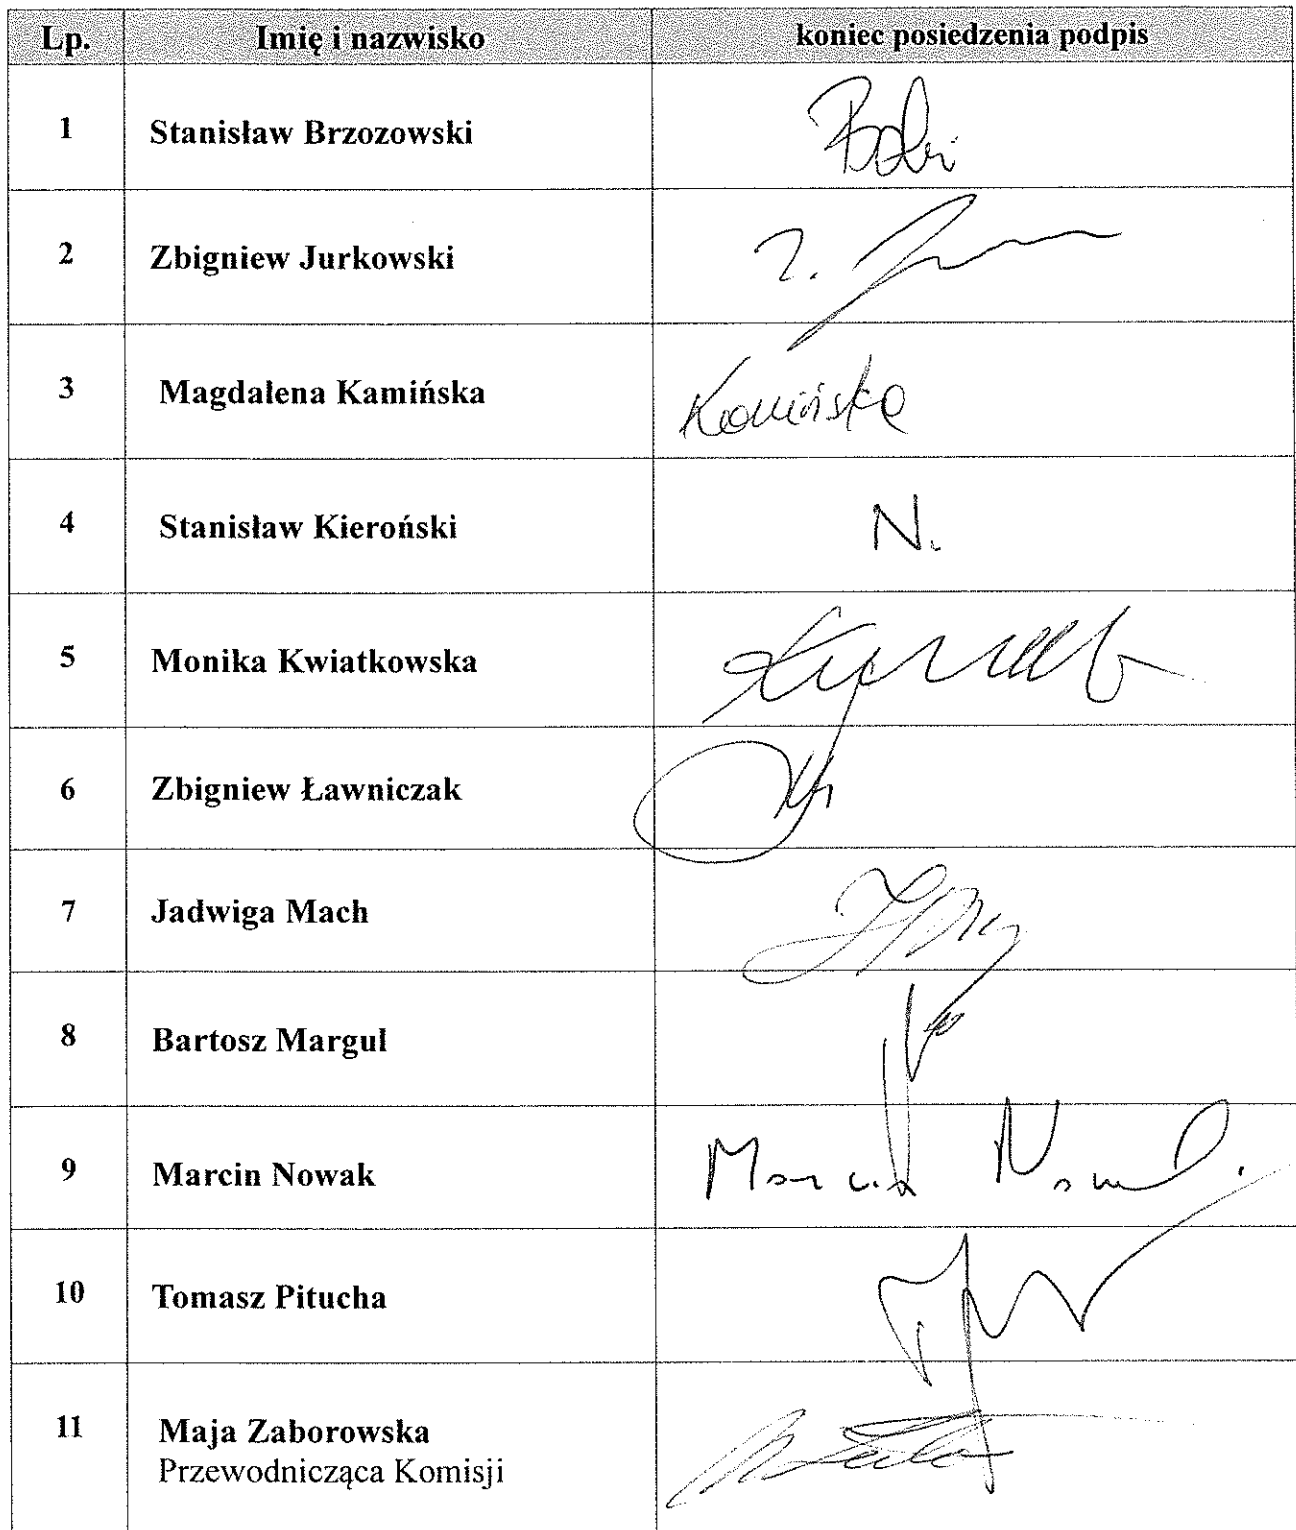 Lp. Imię i nazwisko koniec posiedzenia podpis
1 Stanisław Brzozowski
2 Zbigniew Jurkowski
3 Magdalena Kamińska Kamińska
4 Stanisław Kieroński N.
5 Monika Kwiatkowska
6 Zbigniew Ławniczak
7 Jadwiga Mach
8 Bartosz Margul
9 Marcin Nowak Marcin Nowak
10 Tomasz Pitucha
11 Maja Zaborowska
Przewodnicząca Komisji